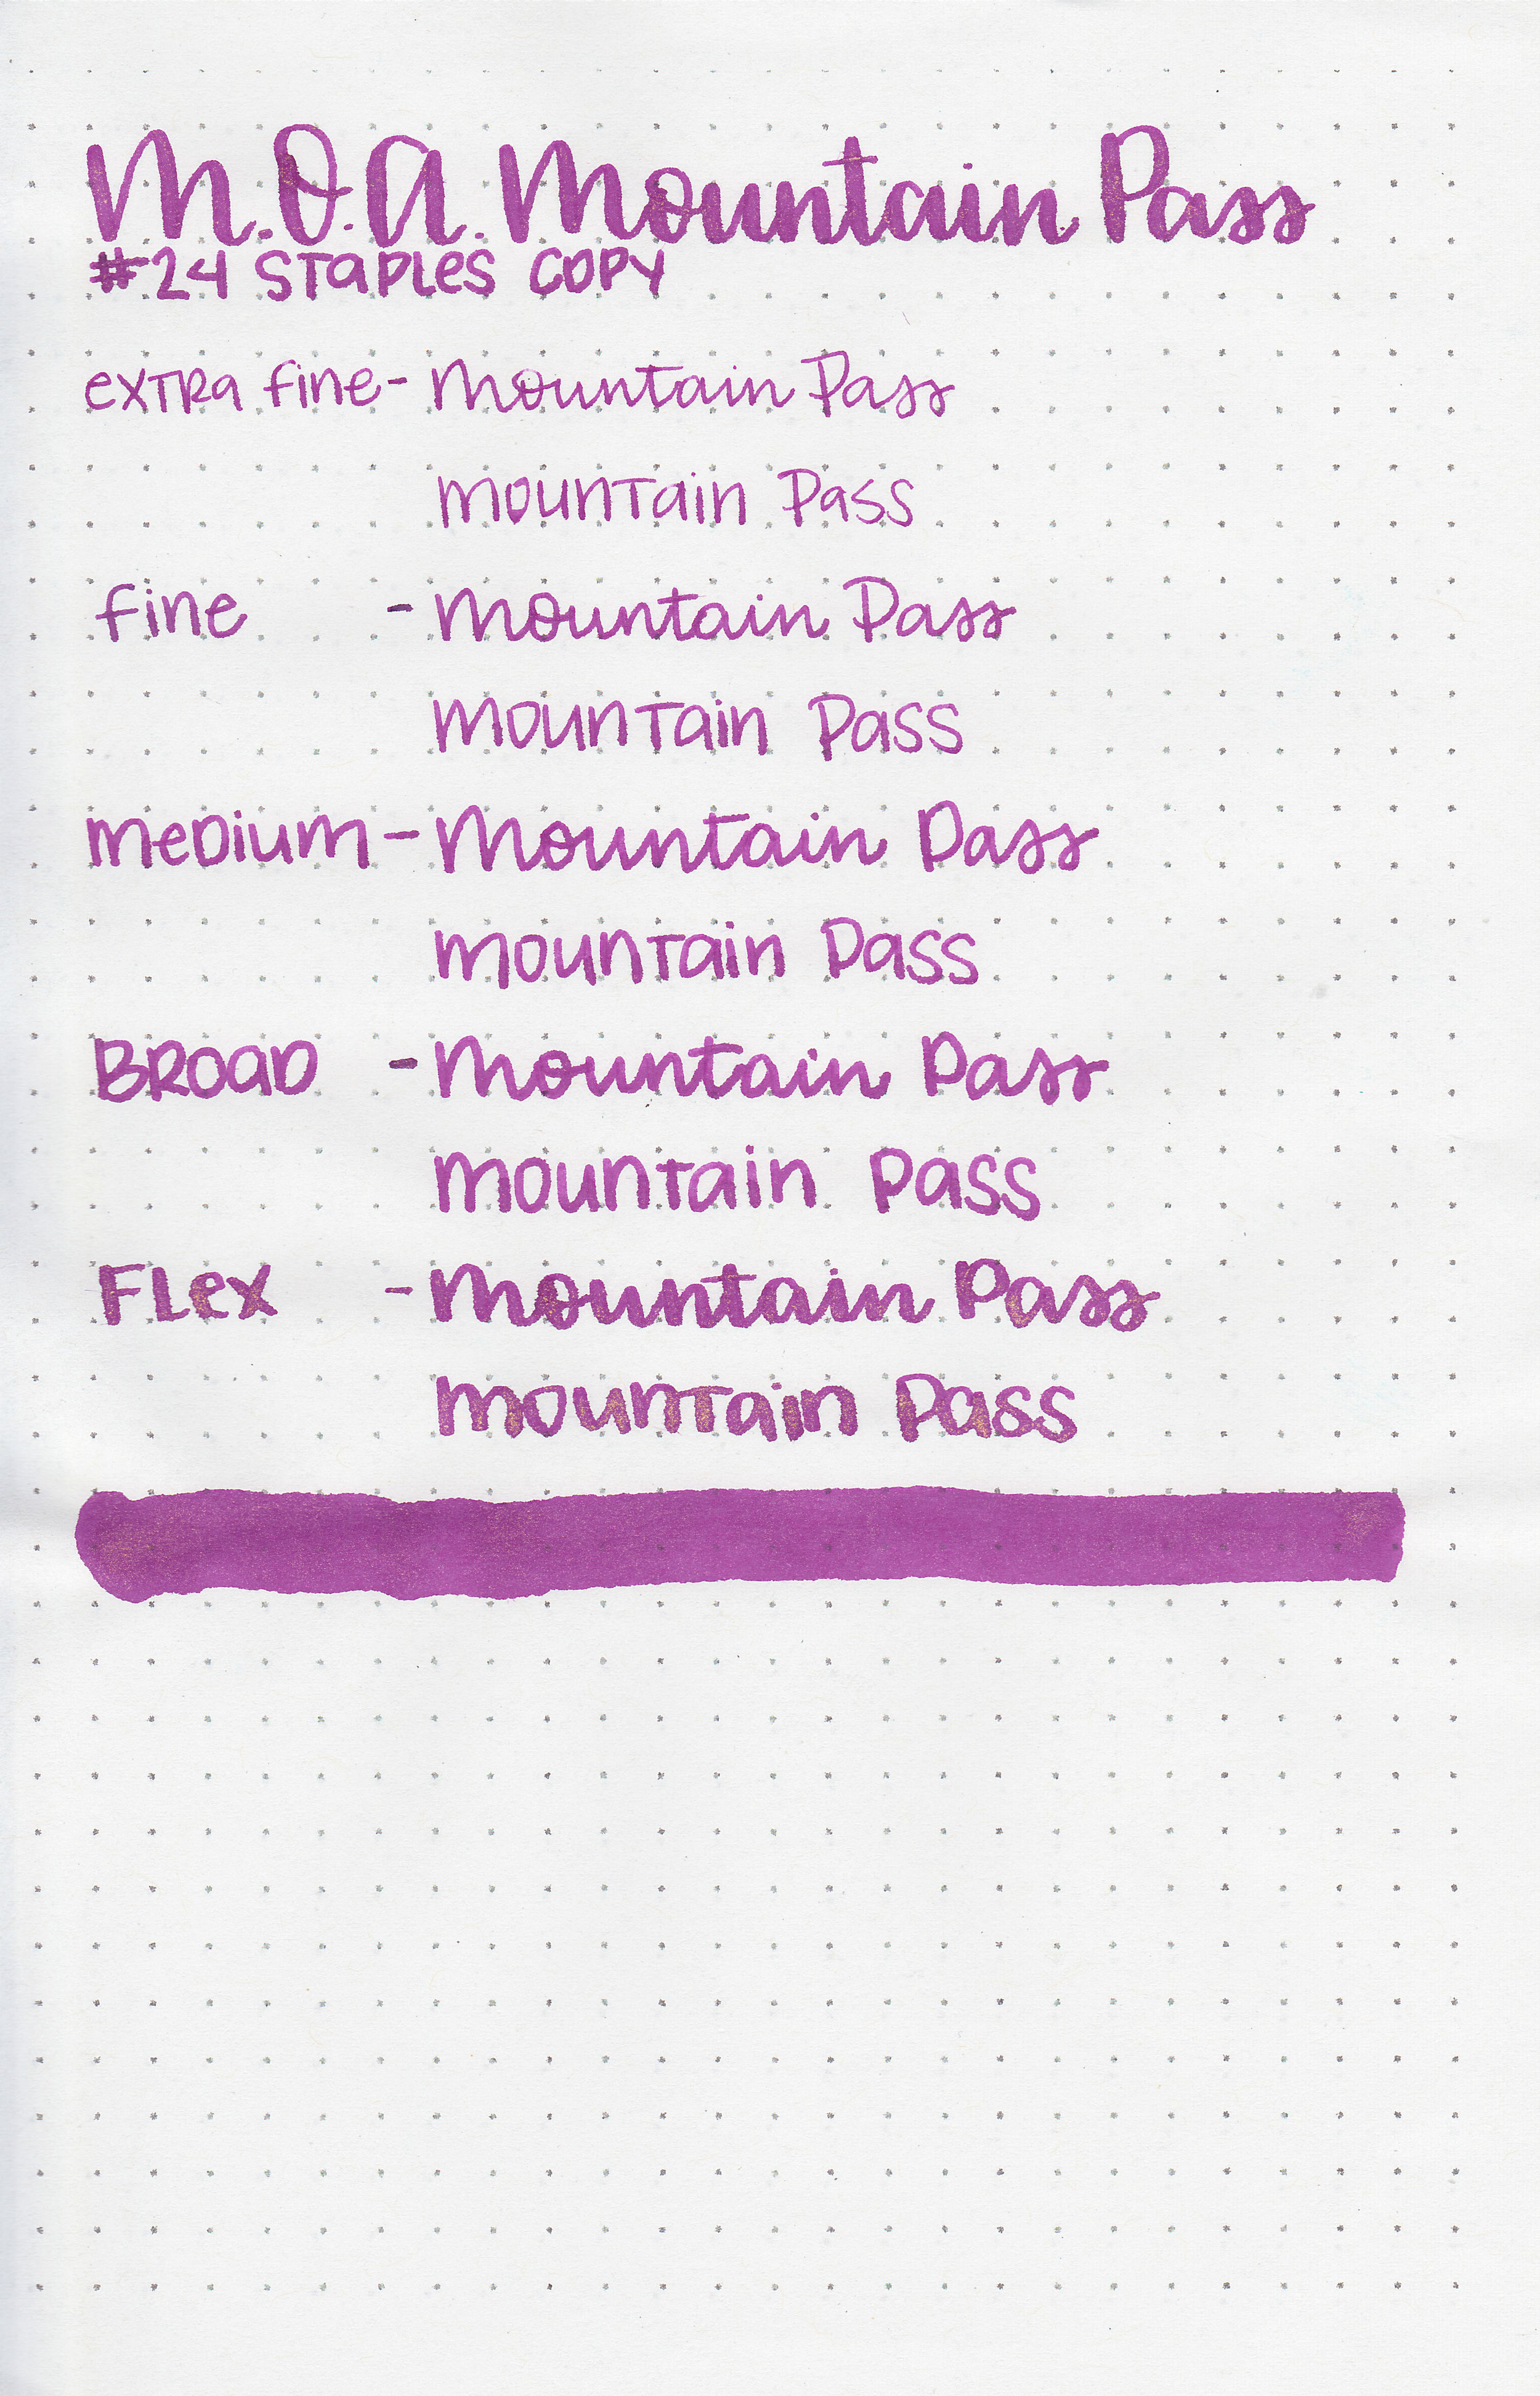 M.O.A. Mountain Pass
#24 STAPLES COPY
exTRa fine - Mountain Pass
mounTain Pass
fine - Mountain Pass
mounTain Pass
meDium - Mountain Pass
mounTain Pass
BROaD - Mountain Pass
mounTain Pass
FLex - Mountain Pass
mounTain Pass